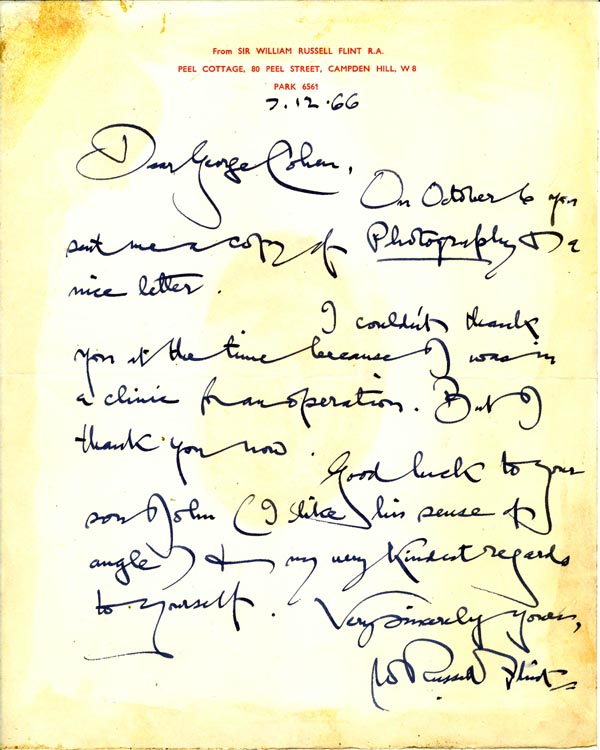 From SIR WILLIAM RUSSELL FLINT R.A.
PEEL COTTAGE, 80 PEEL STREET, CAMPDEN HILL, W 8
PARK 6561
7.12.66
Dear George Cohen,
On October 6 you
sent me a copy of Photography & a
nice letter.
I couldn't thank
you at the time because I was in
a clinic for an operation. But I
thank you now.
Good luck to your
son John (I like his sense of
angle) & my very kindest regards
to yourself. Very sincerely yours,
W Russell Flint